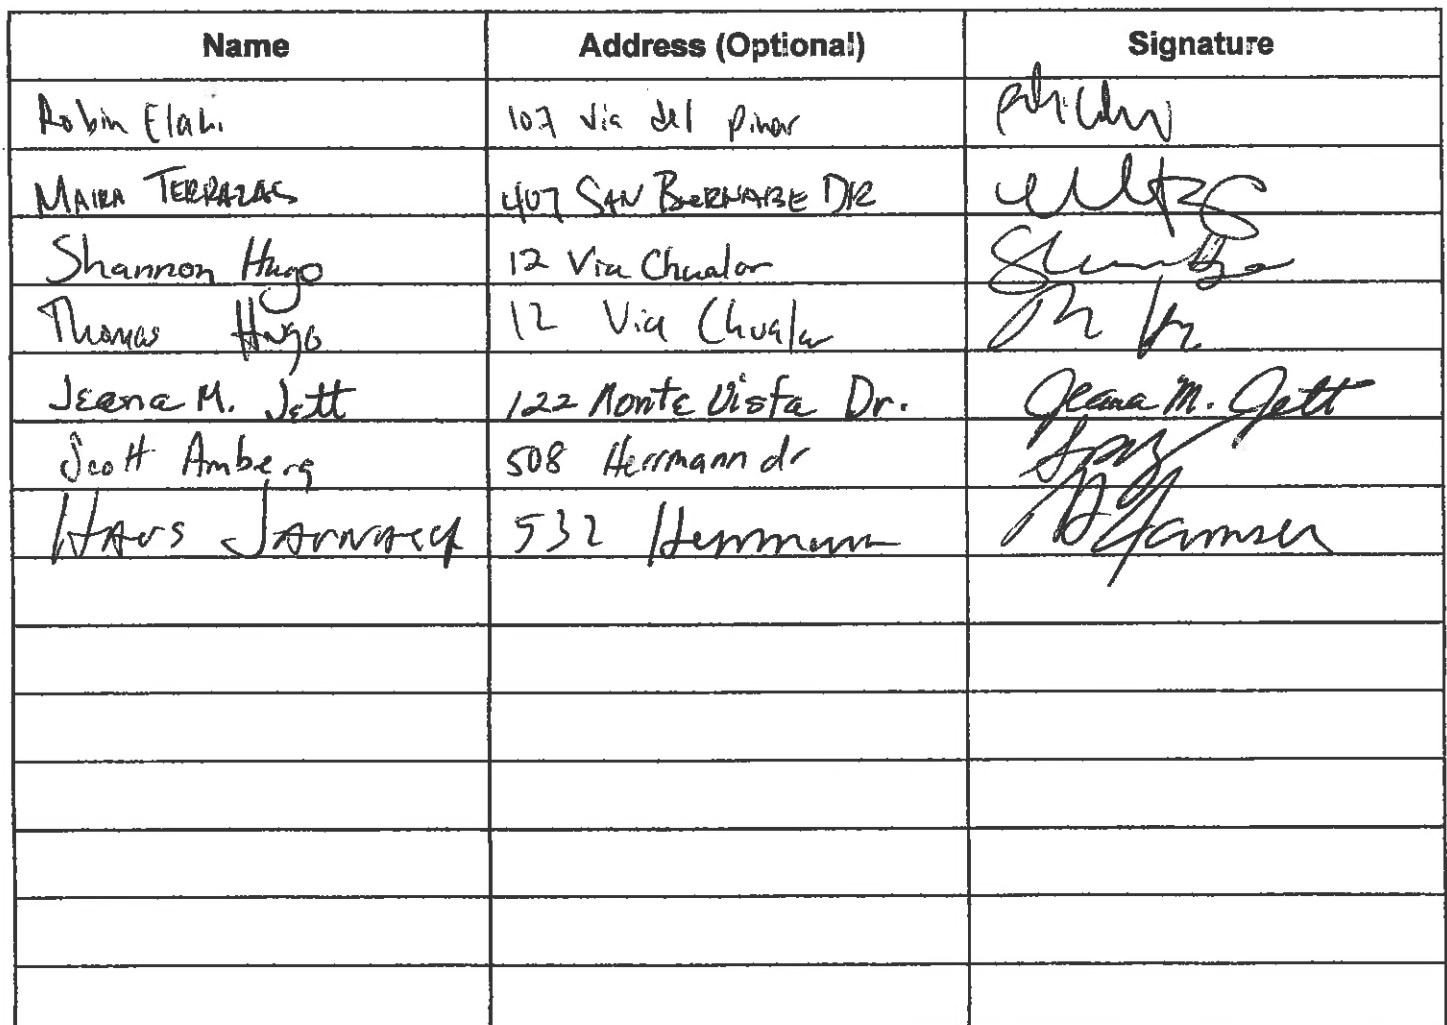 Name Address (Optional) Signature
Robin Elahi 107 Via del Pinar
MAIRA TERRAZAS 407 SAN BERNABE DR
Shannon Hugo 12 Via Chualar
Thomas Hugo 12 Via Chualar
Jeana M. Jett 122 Monte Vista Dr. Jeana M. Jett
Scott Amberg 508 Herrmann dr
HANS 532 Herrmann